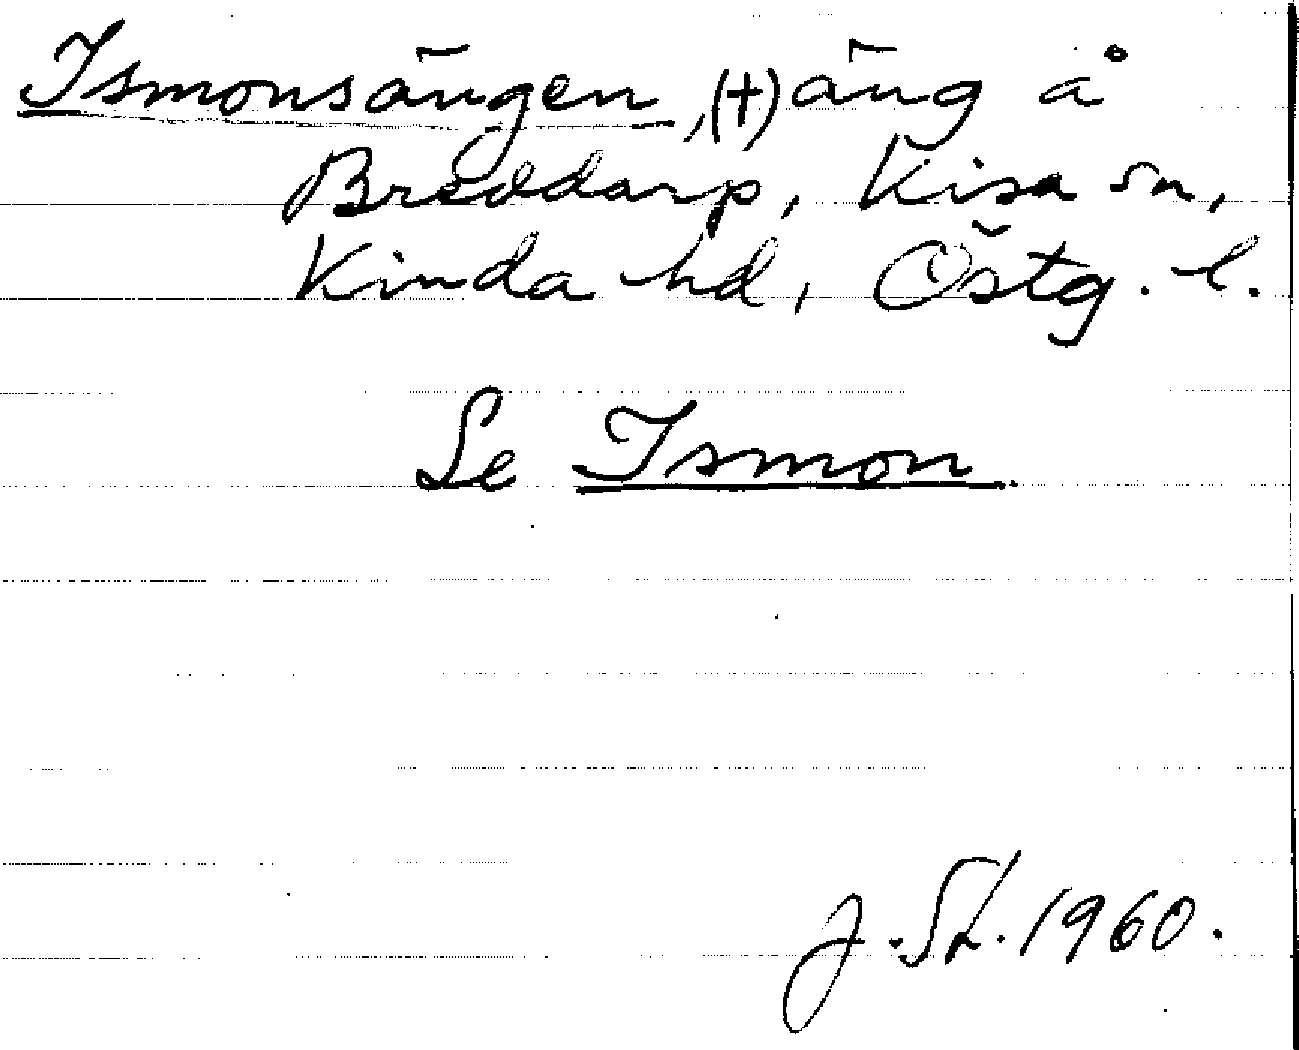 Ismonsängen, (+) äng å
Breddarp, Kisa sn,
Kinda hd, Östg. l.
Se Ismon.
J. Sh. 1960.